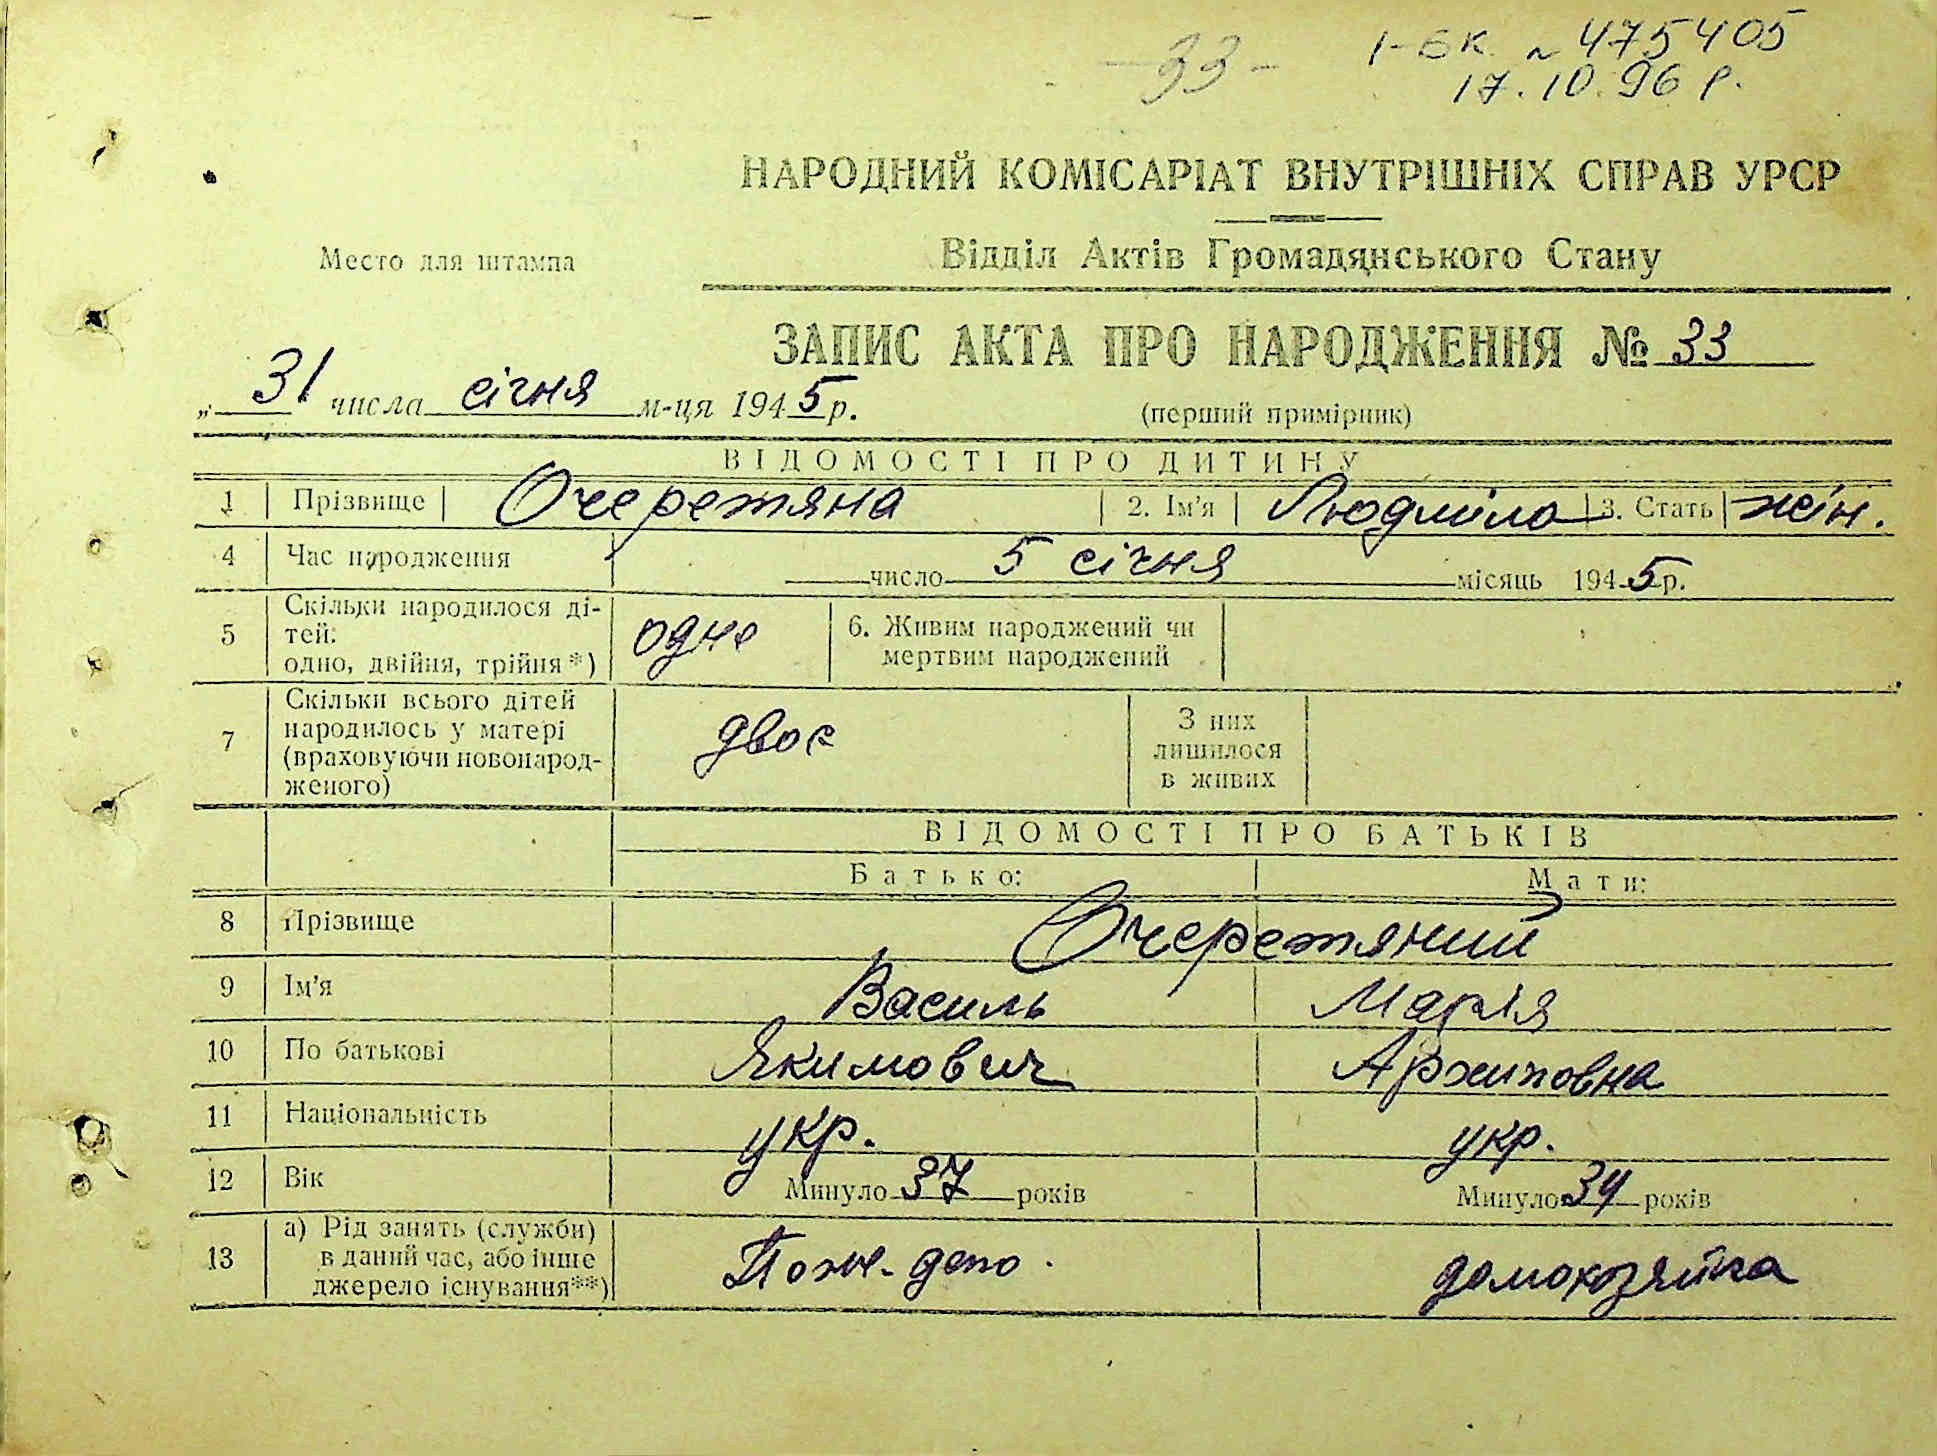 - 33 -
I-БК № 475405
17.10.96 р.
НАРОДНИЙ КОМІСАРІАТ ВНУТРІШНІХ СПРАВ УРСР
Место для штампа
Відділ Актів Громадянського Стану
ЗАПИС АКТА ПРО НАРОДЖЕННЯ № 33
„ 31 числа січня м-ця 1945 р.
(перший примірник)
ВІДОМОСТІ ПРО ДИТИНУ
1 Прізвище Очеретяна 2. Ім'я Людміла 3. Стать жін.
4 Час народження число 5 січня місяць 1945 р.
5 Скільки народилося ді-
тей:
одно, двійня, трійня*) одне 6. Живим народжений чи
мертвим народжений
7 Скільки всього дітей
народилось у матері
(враховуючи новонарод-
женого) двоє
З них
лишилося
в живих
ВІДОМОСТІ ПРО БАТЬКІВ
Батько: Мати:
8 Прізвище Очеретяний
9 Ім'я Василь Марія
10 По батькові Якимович Архиповна
11 Національність укр. укр.
12 Вік Минуло 37 років Минуло 34 років
13 а) Рід занять (служби)
в даний час, або інше
джерело існування**) Пож. депо. домохозяйка